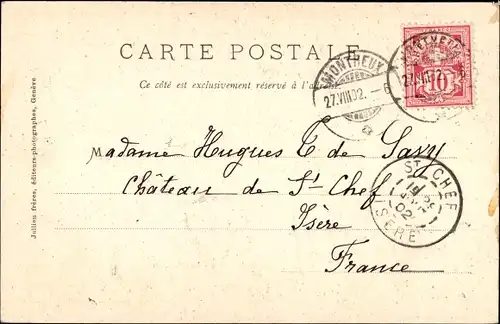 CARTE POSTALE
Ce côté est exclusivement réservé à l'adresse
MONTREUX
27.VIII.02.-6
MONTREUX
27.VIII.02.-6
10
Madame Hugues C de Saxy
Château de St Chef
Isère
France
ST CHEF
ISÈRE
02
Jullien frères, éditeurs-photographes, Genève